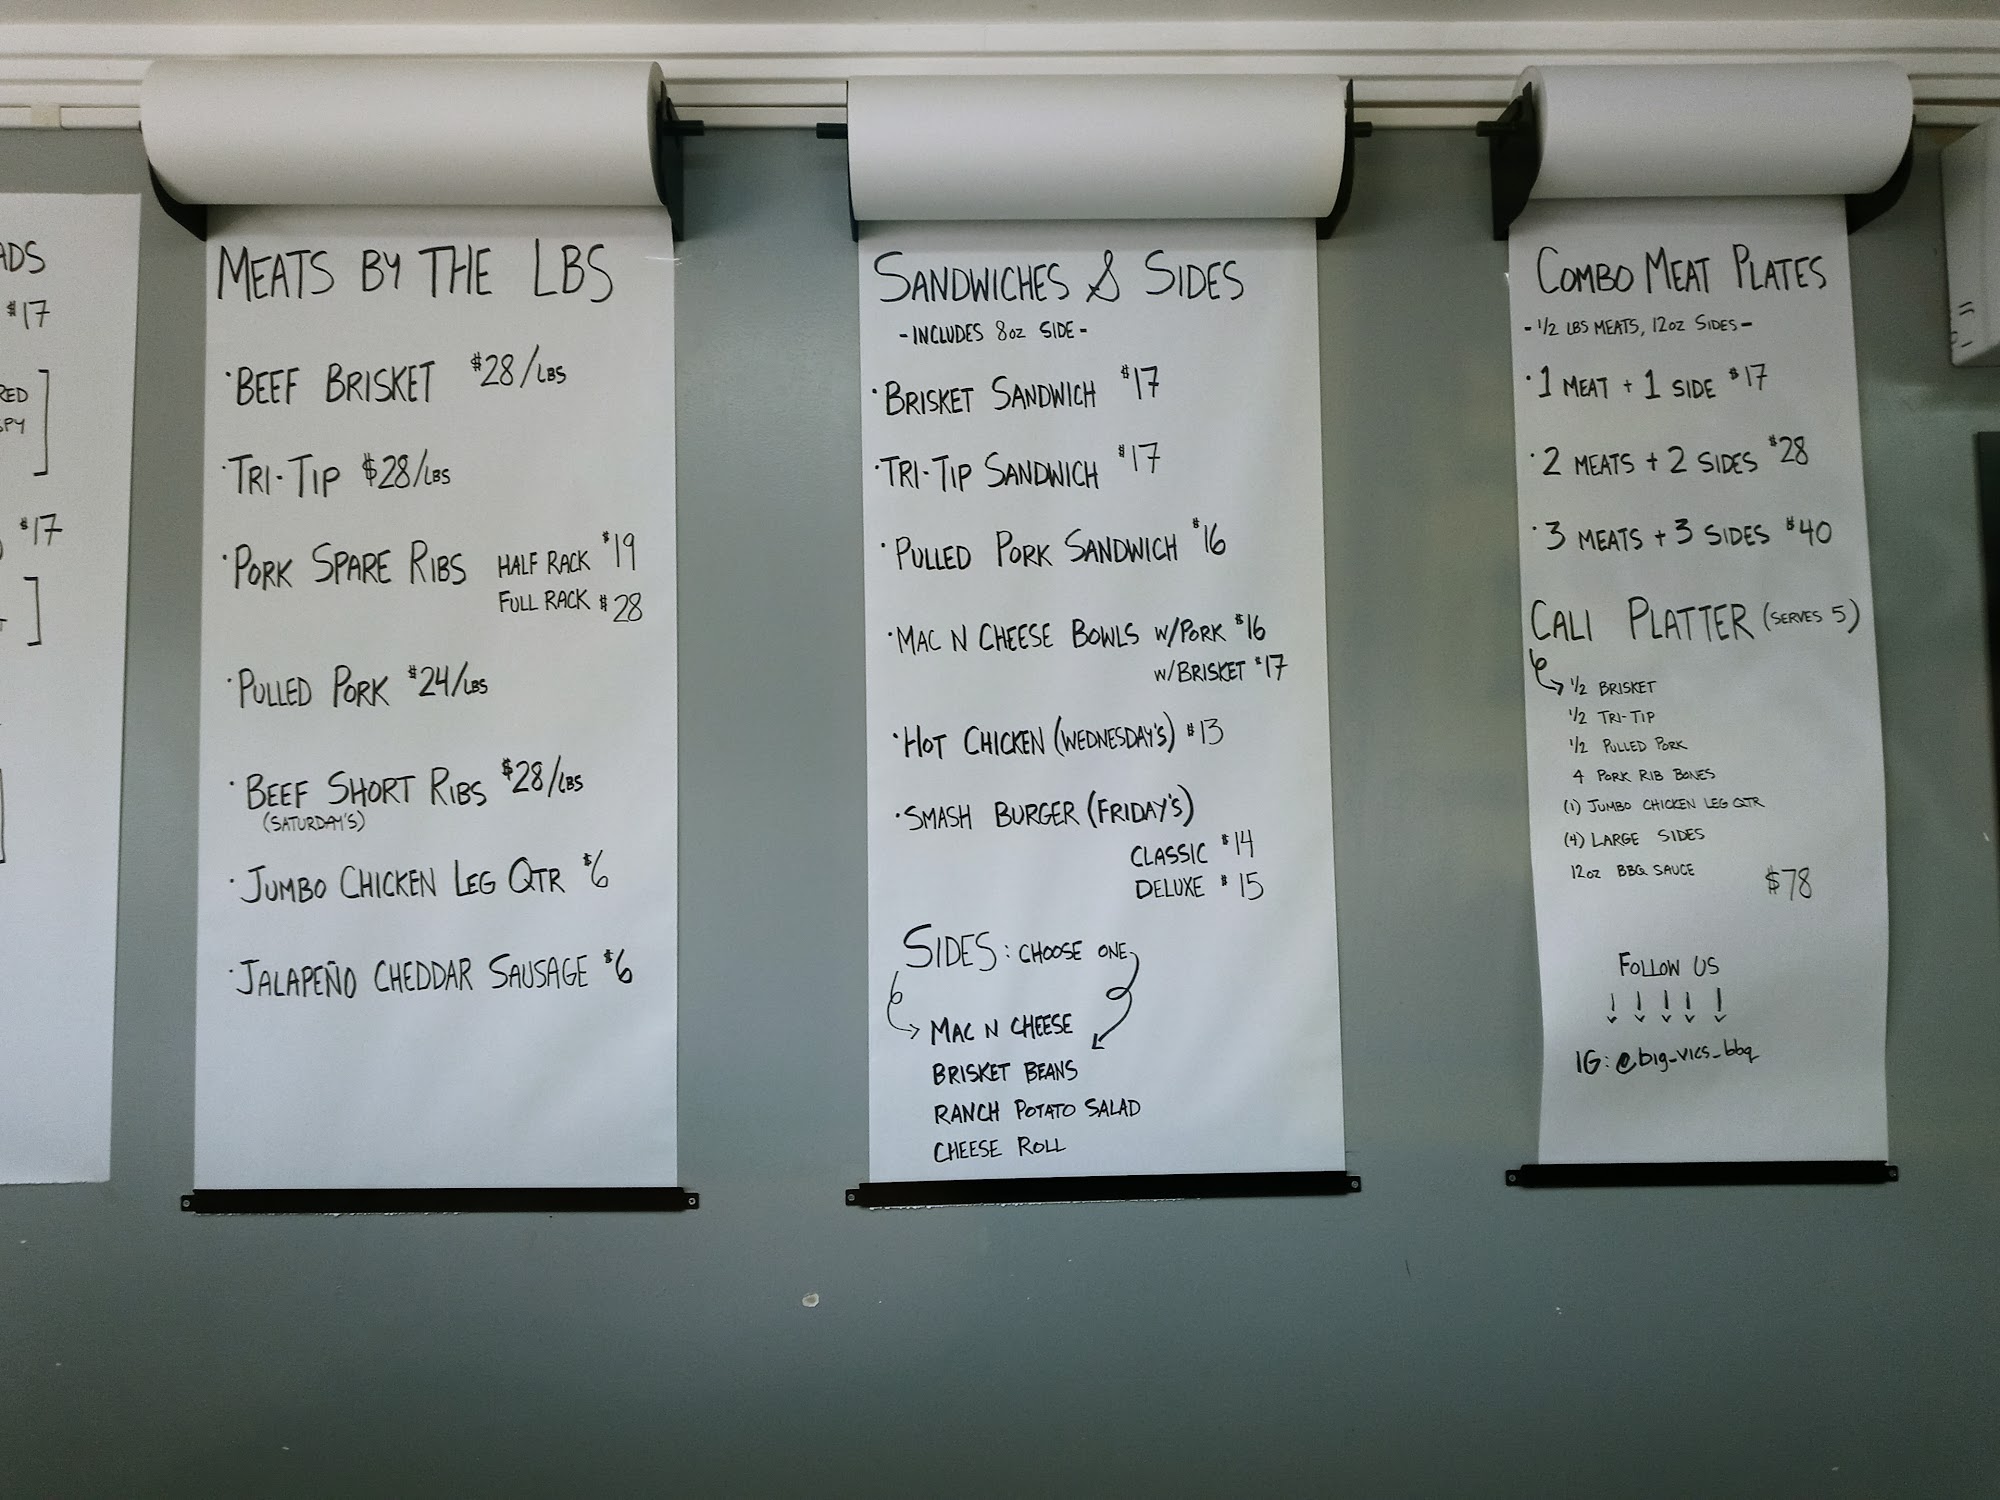 ADS
$17
RED
SPY
$17
MEATS BY THE LBS
· BEEF BRISKET $28/LBS
· TRI-TIP $28/LBS
· PORK SPARE RIBS HALF RACK $19
FULL RACK $28
· PULLED PORK $24/LBS
· BEEF SHORT RIBS $28/LBS
(SATURDAY'S)
· JUMBO CHICKEN LEG QTR $6
· JALAPEÑO CHEDDAR SAUSAGE $6
SANDWICHES & SIDES
- INCLUDES 8oz SIDE -
· BRISKET SANDWICH $17
· TRI-TIP SANDWICH $17
· PULLED PORK SANDWICH $16
· MAC N CHEESE BOWLS W/PORK $16
W/BRISKET $17
· HOT CHICKEN (WEDNESDAY'S) $13
· SMASH BURGER (FRIDAY'S)
CLASSIC $14
DELUXE $15
SIDES: CHOOSE ONE
MAC N CHEESE
BRISKET BEANS
RANCH POTATO SALAD
CHEESE ROLL
COMBO MEAT PLATES
- 1/2 LBS MEATS, 12oz SIDES -
· 1 MEAT + 1 SIDE $17
· 2 MEATS + 2 SIDES $28
· 3 MEATS + 3 SIDES $40
CALI PLATTER (SERVES 5)
1/2 BRISKET
1/2 TRI-TIP
1/2 PULLED PORK
4 PORK RIB BONES
(1) JUMBO CHICKEN LEG QTR
(4) LARGE SIDES
12oz BBQ SAUCE $78
FOLLOW US
IG: @big_vics_bbq